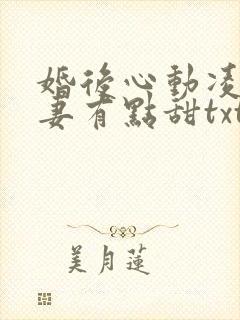 婚後心動凌
妻有點甜txt
美月蓮